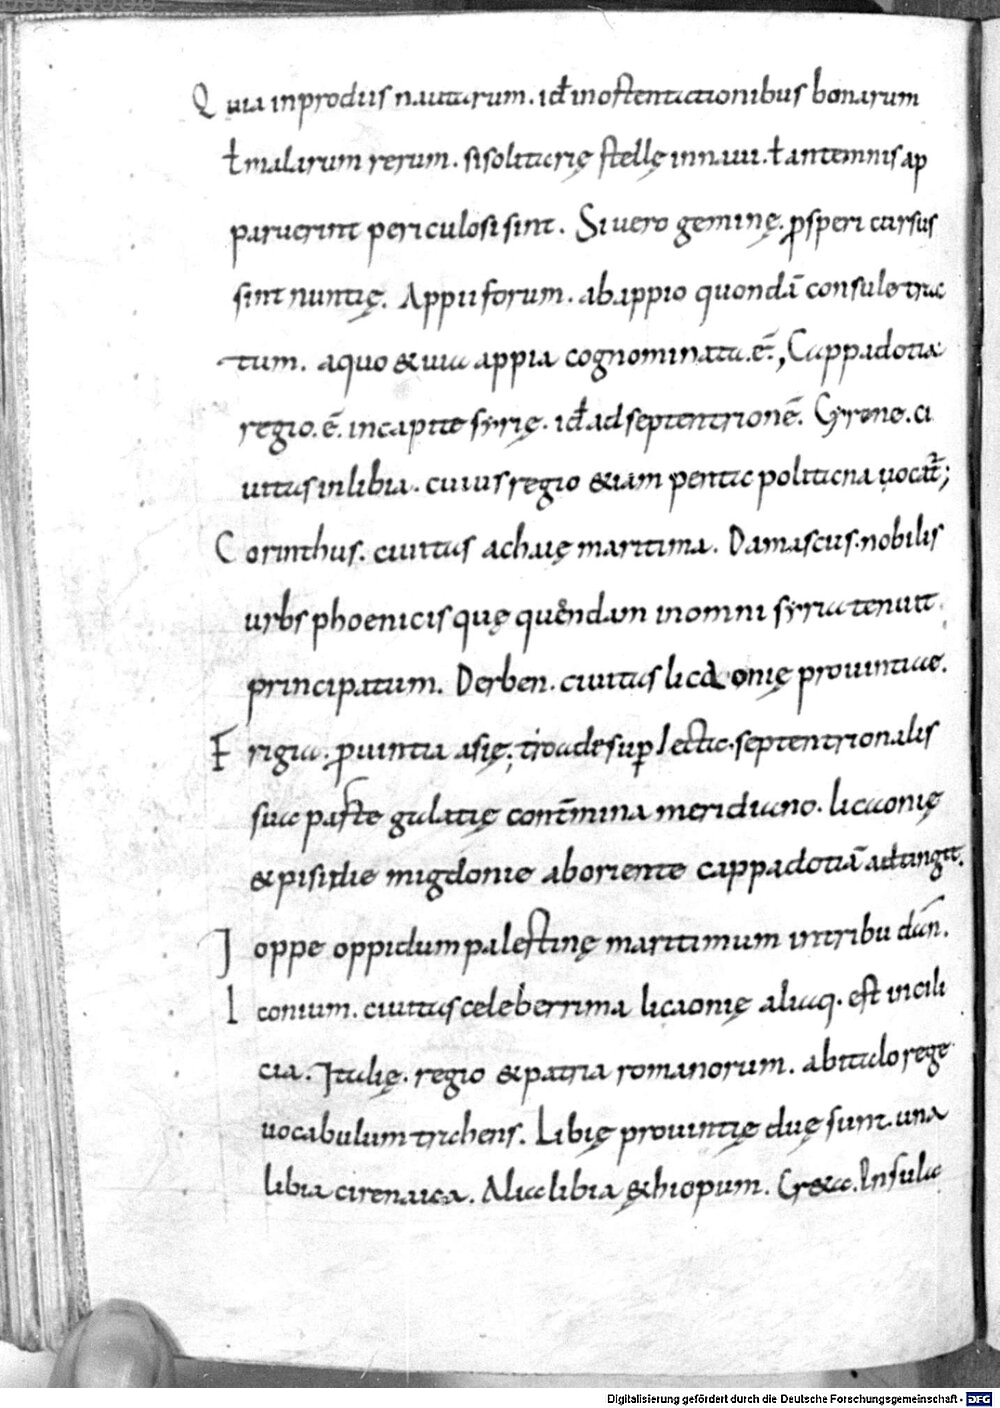 Quia inprodiis nautarum. id÷ inostentationibus bonarum
ł malarum rerum. sisolitarię stellę innaui. ł antemnis ap
paruerint periculosi sint. Si uero geminę. ꝓsperi cursus
sint nuntię. Appii forum. ab appio quondā consule trac
tum. aquo & uia appia cognominata. ē.; Cappadotia
regio. ē. incapite syrię. id÷ ad septentrionē. Cyrene. ci
uitas inlibia. cuius regio &iam pentapolitana uocat̄;
Corinthus. ciuitas achaię maritima. Damascus. nobilis
urbs phoenicis quę quondam inomni syria tenuit
principatum. Derben. ciuitas licaonię prouintiae.
Frigia. ꝓuintia asię; troade suꝑ lectac. septentrionalis
sua parte galatię cont̄mina meridiano. licaonię
& pisidie migdonie aboriente cappadotiā adtingit.
Ioppe oppidum palestinę maritimum intribu dān.
Iconium. ciuitas celeberrima licaonię aliaq. est incili
cia. Italię. regio & patria romanorum. abitalo rege
uocabulum trahens. Libię prouintię duę sunt. una
libia cirenaica. Alia libia &hiopum. Cr&a. Insula
Digitalisierung gefördert durch die Deutsche Forschungsgemeinschaft - DFG